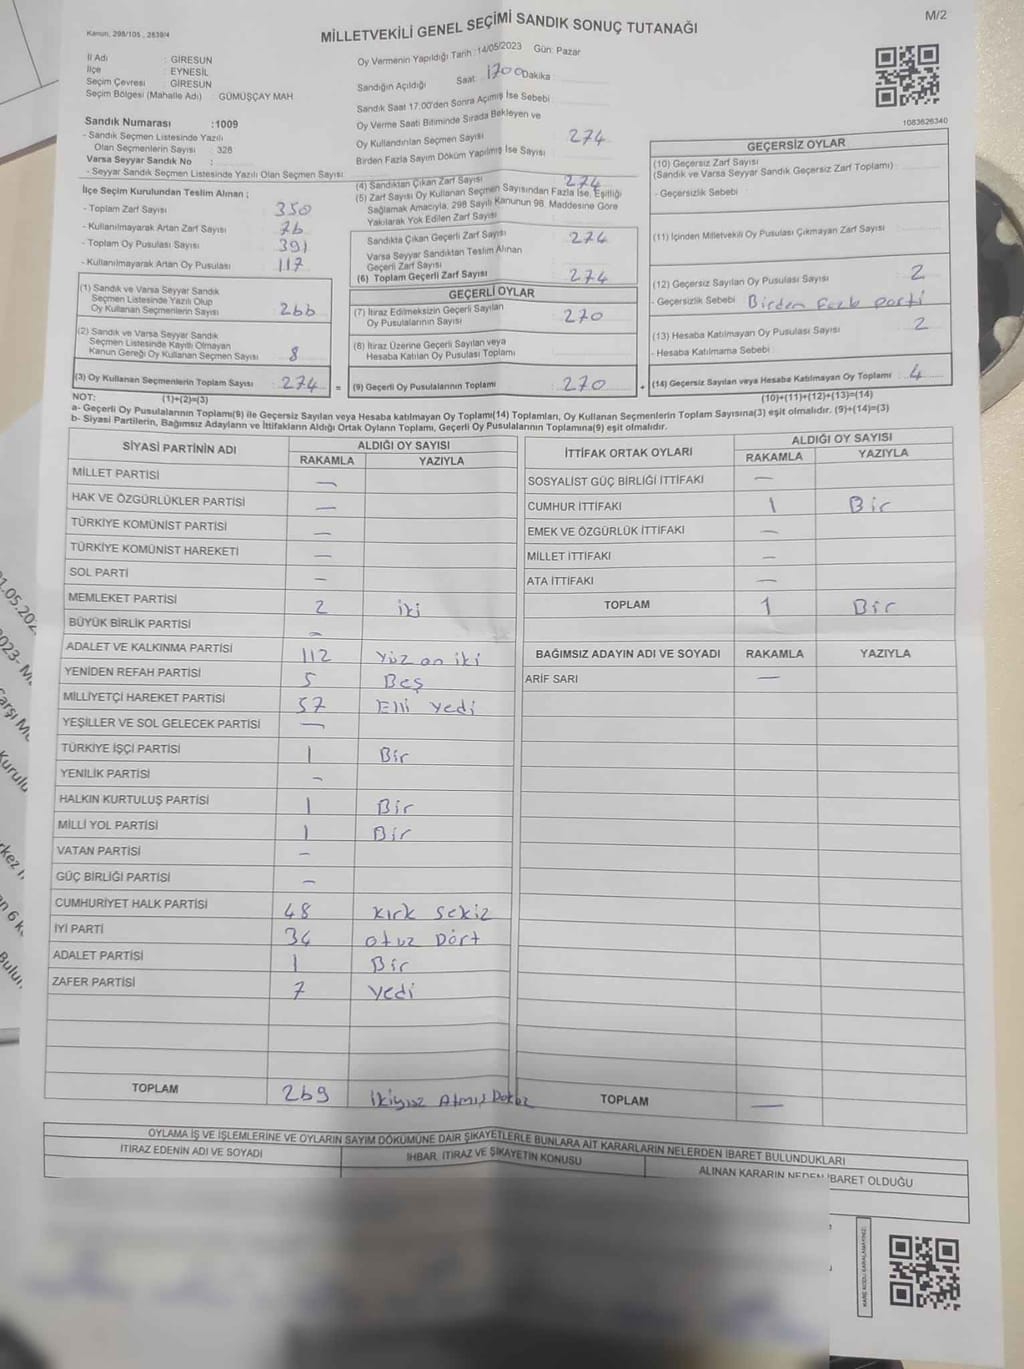 M/2
Kanun, 298/105 , 2839/4
MİLLETVEKİLİ GENEL SEÇİMİ SANDIK SONUÇ TUTANAĞI
İl Adı : GİRESUN
İlçe : EYNESİL
Seçim Çevresi : GİRESUN
Seçim Bölgesi (Mahalle Adı) : GÜMÜŞÇAY MAH
Oy Vermenin Yapıldığı Tarih :14/05/2023 Gün: Pazar
Sandığın Açıldığı Saat: 1700 Dakika :
Sandık Saat 17.00'den Sonra Açılmış İse Sebebi
Oy Verme Saati Bitiminde Sırada Bekleyen ve
Oy Kullandırılan Seçmen Sayısı 274
Birden Fazla Sayım Döküm Yapılmış İse Sayısı
1083626340
Sandık Numarası :1009
- Sandık Seçmen Listesinde Yazılı
Olan Seçmenlerin Sayısı : 328
Varsa Seyyar Sandık No :
- Seyyar Sandık Seçmen Listesinde Yazılı Olan Seçmen Sayısı:
İlçe Seçim Kurulundan Teslim Alınan ;
- Toplam Zarf Sayısı 350
- Kullanılmayarak Artan Zarf Sayısı 76
- Toplam Oy Pusulası Sayısı 391
- Kullanılmayarak Artan Oy Pusulası 117
(1) Sandık ve Varsa Seyyar Sandık
Seçmen Listesinde Yazılı Olup
Oy Kullanan Seçmenlerin Sayısı 266
(2) Sandık ve Varsa Seyyar Sandık
Seçmen Listesinde Kayıtlı Olmayan
Kanun Gereği Oy Kullanan Seçmen Sayısı 8
(3) Oy Kullanan Seçmenlerin Toplam Sayısı 274 =
(4) Sandıktan Çıkan Zarf Sayısı 274
(5) Zarf Sayısı Oy Kullanan Seçmen Sayısından Fazla İse, Eşitliği
Sağlamak Amacıyla, 298 Sayılı Kanunun 98. Maddesine Göre
Yakılarak Yok Edilen Zarf Sayısı
Sandıkta Çıkan Geçerli Zarf Sayısı 274
Varsa Seyyar Sandıktan Teslim Alınan
Geçerli Zarf Sayısı
(6) Toplam Geçerli Zarf Sayısı 274
GEÇERLİ OYLAR
(7) İtiraz Edilmeksizin Geçerli Sayılan
Oy Pusulalarının Sayısı 270
(8) İtiraz Üzerine Geçerli Sayılan veya
Hesaba Katılan Oy Pusulası Toplamı
(9) Geçerli Oy Pusulalarının Toplamı 270 +
GEÇERSİZ OYLAR
(10) Geçersiz Zarf Sayısı
(Sandık ve Varsa Seyyar Sandık Geçersiz Zarf Toplamı)
- Geçersizlik Sebebi
(11) İçinden Milletvekili Oy Pusulası Çıkmayan Zarf Sayısı
(12) Geçersiz Sayılan Oy Pusulası Sayısı 2
- Geçersizlik Sebebi Birden fazla parti
(13) Hesaba Katılmayan Oy Pusulası Sayısı 2
- Hesaba Katılmama Sebebi
(14) Geçersiz Sayılan veya Hesaba Katılmayan Oy Toplamı 4
NOT: (1)+(2)=(3) (10)+(11)+(12)+(13)=(14)
a- Geçerli Oy Pusulalarının Toplamı(9) ile Geçersiz Sayılan veya Hesaba katılmayan Oy Toplamı(14) Toplamları, Oy Kullanan Seçmenlerin Toplam Sayısına(3) eşit olmalıdır. (9)+(14)=(3)
b- Siyasi Partilerin, Bağımsız Adayların ve İttifakların Aldığı Ortak Oyların Toplamı, Geçerli Oy Pusulalarının Toplamına(9) eşit olmalıdır.
SİYASİ PARTİNİN ADI ALDIĞI OY SAYISI
RAKAMLA YAZIYLA
MİLLET PARTİSİ —
HAK VE ÖZGÜRLÜKLER PARTİSİ —
TÜRKİYE KOMÜNİST PARTİSİ —
TÜRKİYE KOMÜNİST HAREKETİ —
SOL PARTİ —
MEMLEKET PARTİSİ 2 iki
BÜYÜK BİRLİK PARTİSİ —
ADALET VE KALKINMA PARTİSİ 112 Yüz on iki
YENİDEN REFAH PARTİSİ 5 Beş
MİLLİYETÇİ HAREKET PARTİSİ 57 Elli yedi
YEŞİLLER VE SOL GELECEK PARTİSİ —
TÜRKİYE İŞÇİ PARTİSİ 1 Bir
YENİLİK PARTİSİ —
HALKIN KURTULUŞ PARTİSİ 1 Bir
MİLLİ YOL PARTİSİ 1 Bir
VATAN PARTİSİ —
GÜÇ BİRLİĞİ PARTİSİ —
CUMHURİYET HALK PARTİSİ 48 kırk sekiz
İYİ PARTİ 34 otuz Dört
ADALET PARTİSİ 1 Bir
ZAFER PARTİSİ 7 yedi
TOPLAM 269 ikiyüz Atmış Dokuz
İTTİFAK ORTAK OYLARI ALDIĞI OY SAYISI
RAKAMLA YAZIYLA
SOSYALİST GÜÇ BİRLİĞİ İTTİFAKI —
CUMHUR İTTİFAKI 1 Bir
EMEK VE ÖZGÜRLÜK İTTİFAKI —
MİLLET İTTİFAKI —
ATA İTTİFAKI —
TOPLAM 1 Bir
BAĞIMSIZ ADAYIN ADI VE SOYADI RAKAMLA YAZIYLA
ARİF SARI —
TOPLAM —
OYLAMA İŞ VE İŞLEMLERİNE VE OYLARIN SAYIM DÖKÜMÜNE DAİR ŞİKAYETLERLE BUNLARA AİT KARARLARIN NELERDEN İBARET BULUNDUKLARI
İTİRAZ EDENİN ADI VE SOYADI
İHBAR, İTİRAZ VE ŞİKAYETİN KONUSU
ALINAN KARARIN NEDEN İBARET OLDUĞU
KARE KODU KARALAMAYINIZ.